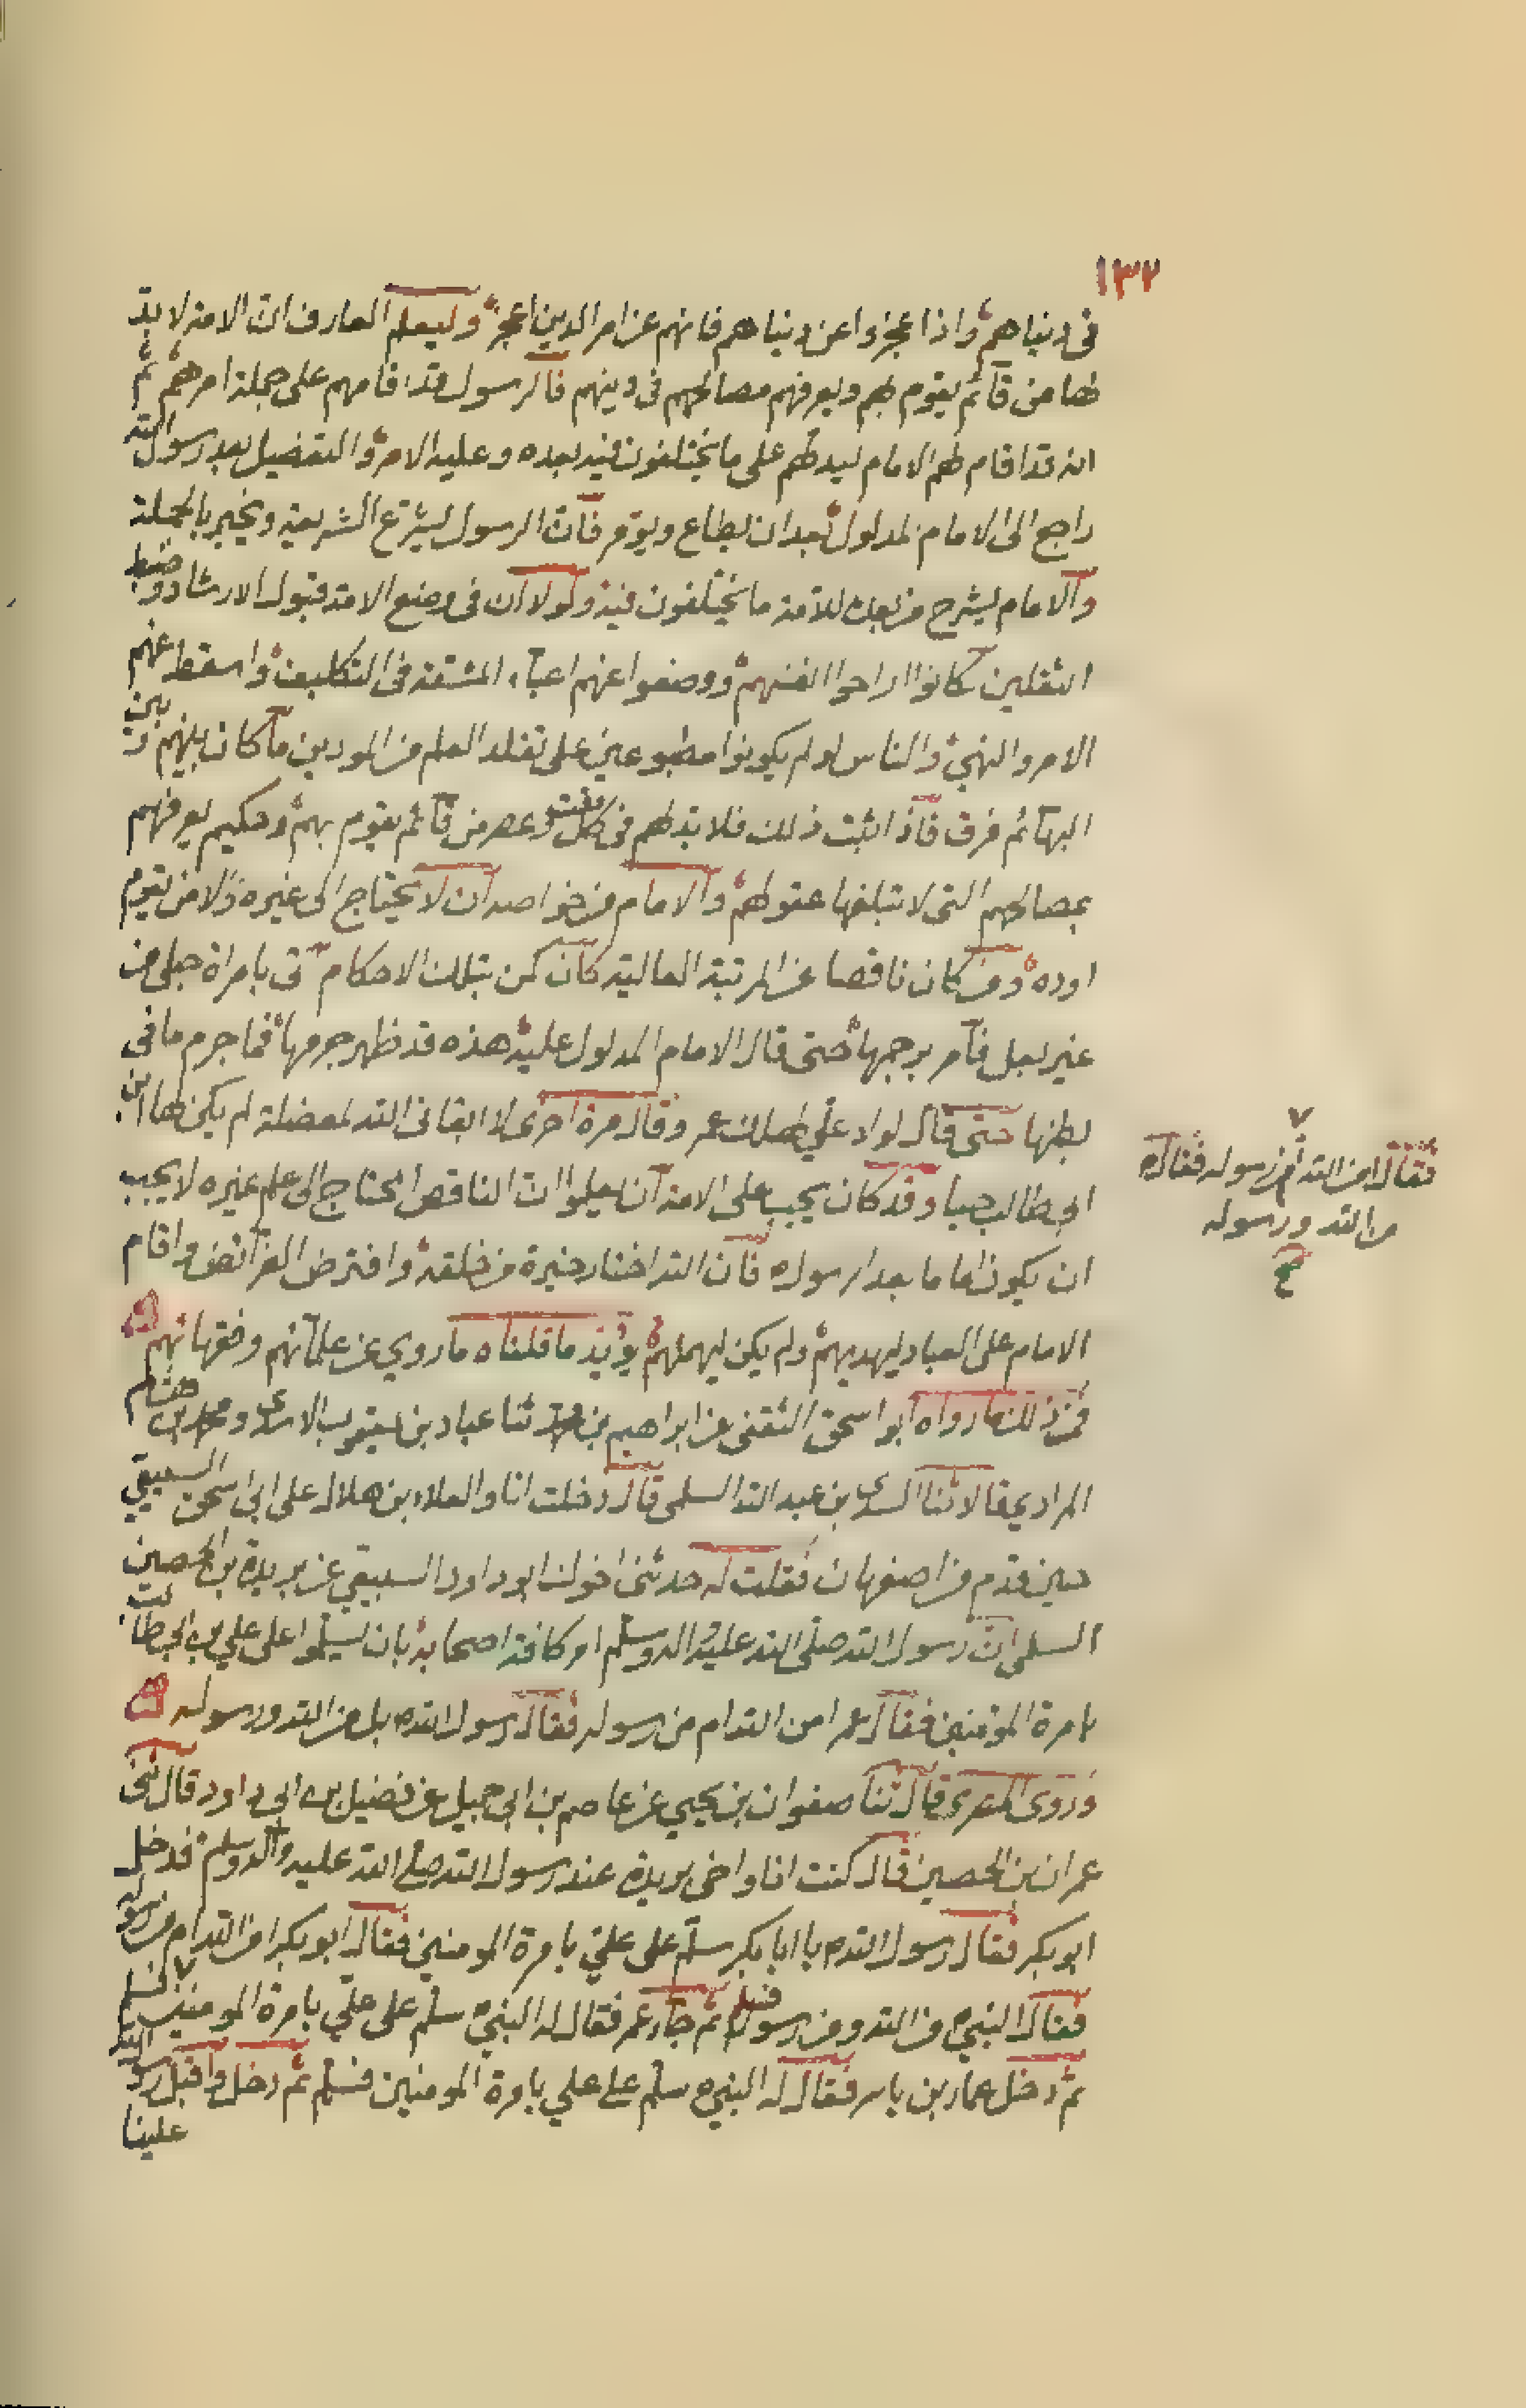 ١٣٢
في دنياهم واذا عجزوا عن دنياهم فانهم عن امر الدين اعجز وليعلم العارف ان الامة لا بد
لها من قآئم يقوم بهم ويعرفهم مصالحهم في دينهم فالرسول قد اقامهم على جملة امرهم ثم
انه قد اقام لهم الامام ليدلهم على ما يختلفون فيه بعده وعليه الامر والتفضيل بعد رسول الله
راجع الى الامام المدلول بعد ان يطاع ويوقر فان الرسول ليشرع الشريعة ويخبر بالجملة
والامام ليشرح من بعده للامة ما يختلفون فيه ولولا ان في وضع الامة قبول الارشاد وضبط
الثقلين كانوا اراحوا انفسهم ووضعوا عنهم اعبآء المشقة في التكليف واسقط عنهم
الامر والنهي والناس لو لم يكونوا مطبوعين على تقلد العلم من المودبين ما كان بينهم وبين
البهآئم فرق فاذا ثبت ذلك فلا بد لهم في كل وقت وعصر من قآئم يقوم بهم وحكيم يعرفهم
بمصالحهم التي لا تبلغها عقولهم والامام من خواصه ان لا يحتاج الى غيره ولا من يقوم
اوده ومن كان ناقصا عن المرتبة العالية كان كمن بتلك الاحكام اتى بامراة حبلى من
غير بعل فامر برجمها حتى قال الامام المدلول عليه هذه قد ظهر جرمها فما جرم ما في
بطنها حتى قال لولا علي لهلك عمر وقال مرة اخرى لا ابقاني الله لمعضلة لم يكن لها ابن
ابي طالب حيا وقد كان يجب على الامة ان يعلموا ان الناقص المحتاج الى علم غيره لا يجب
ان يكون اماما بعد الرسول فان الله اختار خيرة من خلقه وافترض الفرآئض واقام
الامام على العباد ليهديهم ولم يكن ليهملهم يؤيد ما قلناه ما روي عن علمآئهم وفقهائهم
فمن ذلك ما رواه ابو اسحق الثقفي عن ابراهيم بن محمد ثنا عباد بن يعقوب الاسدي ومحمد بن هشام
المرادي قالا ثنا السدي بن عبد الله السلمي قال دخلت انا والعلاء بن هلال على ابي اسحق السبيعي
حين قدم من اصفهان فقلت له حدثني اخوك ابو داود السبيعي عن بريدة بن الحصين
السلمي ان رسول الله صلى الله عليه وآله وسلم امر كافة اصحابه بان يسلموا على علي بن ابي طالب
بامرة المؤمنين فقال عمر امن الله ام من رسوله فقال رسول الله بل من الله ورسوله
وروى المعري قال ثنا صفوان بن يحيى عن عاصم بن ابي جميل عن فضيل بن ابي داود قال ثنى
عمران بن الحصين قال كنت انا واخي بريدة عند رسول الله صلى الله عليه وآله وسلم فدخل
ابو بكر فقال رسول الله يا ابا بكر سلم على علي بامرة المومنين فقال ابو بكر امن الله ام من رسوله
فقال النبي من الله ومن رسوله فسلم ثم جآء عمر فقال له النبي سلم على علي بامرة المومنين فسلم
ثم دخل عمار بن ياسر فقال له النبي سلم على علي بامرة المومنين فسلم ثم دخل واقبل رسول الله
علينا
فقال امن الله ام من رسوله فقال
من الله ورسوله
صح